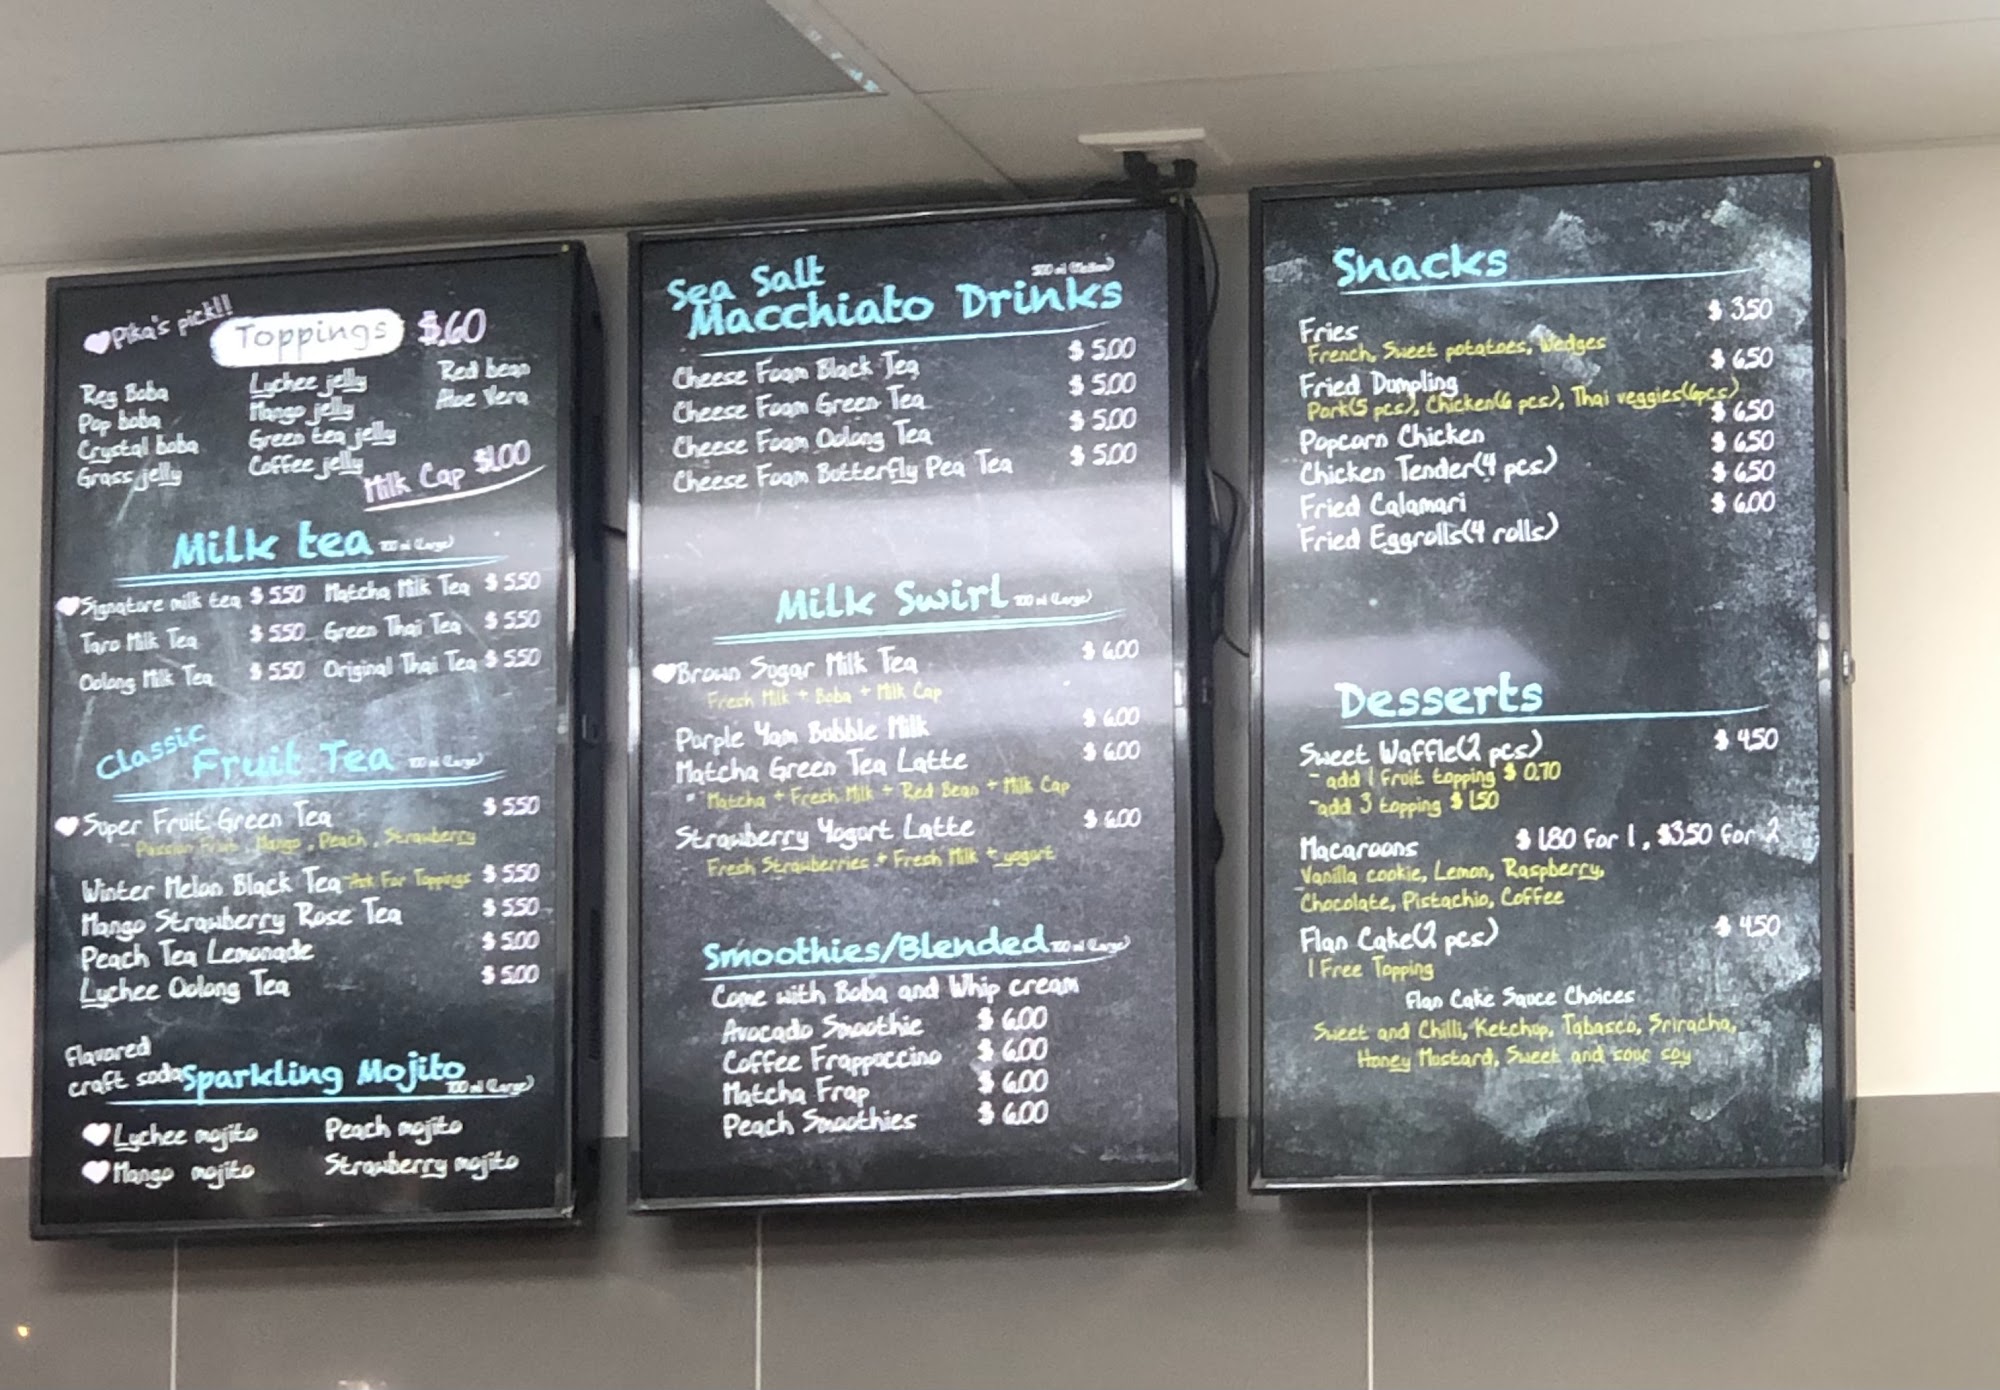 Pika's pick!!
Toppings $.60
Reg Boba Lychee jelly Red bean
Pop boba Mango jelly Aloe Vera
Crystal boba Green tea jelly
Grass jelly Coffee jelly
Milk Cap $1.00
Milk tea 700 ml (Large)
Signature milk tea $ 5.50 Matcha Milk Tea $ 5.50
Taro Milk Tea $ 5.50 Green Thai Tea $ 5.50
Oolong Milk Tea $ 5.50 Original Thai Tea $ 5.50
Classic
Fruit Tea 700 ml (Large)
Super Fruit Green Tea $ 5.50
Passion Fruit, Mango, Peach, Strawberry
Winter Melon Black Tea -Ask For Toppings $ 5.50
Mango Strawberry Rose Tea $ 5.50
Peach Tea Lemonade $ 5.00
Lychee Oolong Tea $ 5.00
Flavored
craft soda Sparkling Mojito 700 ml (Large)
Lychee mojito Peach mojito
Mango mojito Strawberry mojito
Sea Salt 500 ml (Medium)
Macchiato Drinks
Cheese Foam Black Tea $ 5.00
Cheese Foam Green Tea $ 5.00
Cheese Foam Oolong Tea $ 5.00
Cheese Foam Butterfly Pea Tea $ 5.00
Milk Swirl 700 ml (Large)
Brown Sugar Milk Tea $ 6.00
Fresh Milk + Boba + Milk Cap
Purple Yam Bubble Milk $ 6.00
Matcha Green Tea Latte $ 6.00
Matcha + Fresh Milk + Red Bean + Milk Cap
Strawberry Yogurt Latte $ 6.00
Fresh Strawberries + Fresh Milk + yogurt
Smoothies/Blended 700 ml (Large)
Come with Boba and Whip cream
Avocado Smoothie $ 6.00
Coffee Frappuccino $ 6.00
Matcha Frap $ 6.00
Peach Smoothies $ 6.00
Snacks
Fries $ 3.50
French, Sweet potatoes, Wedges
Fried Dumpling $ 6.50
Pork(5 pcs), Chicken(6 pcs), Thai veggies(6pcs)
Popcorn Chicken $ 6.50
Chicken Tender(4 pcs) $ 6.50
Fried Calamari $ 6.50
Fried Eggrolls(4 rolls) $ 6.00
Desserts
Sweet Waffle(2 pcs) $ 4.50
- add 1 fruit topping $ 0.70
-add 3 topping $ 1.50
Macaroons $ 1.80 for 1, $3.50 for 2
Vanilla cookie, Lemon, Raspberry,
Chocolate, Pistachio, Coffee
Flan Cake(2 pcs) $ 4.50
1 Free Topping
Flan Cake Sauce Choices
Sweet and Chilli, Ketchup, Tabasco, Sriracha,
Honey Mustard, Sweet and sour soy